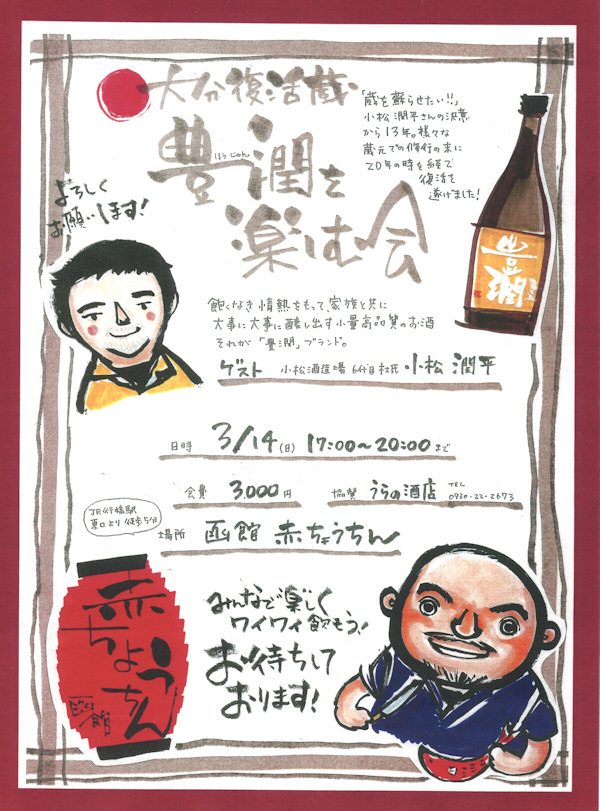 大分復活蔵
豊潤を
ほうじゅん
楽しむ会
「蔵を蘇らせたい!!」
小松潤平さんの決意
から13年。様々な
蔵元での修行の末に
20年の時を経て
復活を
遂げました!
よろしく
お願いします!
豊潤
飽くなき情熱をもって、家族と共に
大事に大事に醸し出す小量高品質のお酒
それが「豊潤」ブランド。
ゲスト 小松酒造場 6代目杜氏 小松 潤平
日時 3/14(日) 17:00〜20:00まで
会費 3,000円 協賛 うらの酒店 TEL 0930-22-2673
JR行橋駅
東口より徒歩5分
場所 函館 赤ちょうちん
赤
ちょうちん
函館
みんなで楽しく
ワイワイ飲もう!
お待ちして
おります!